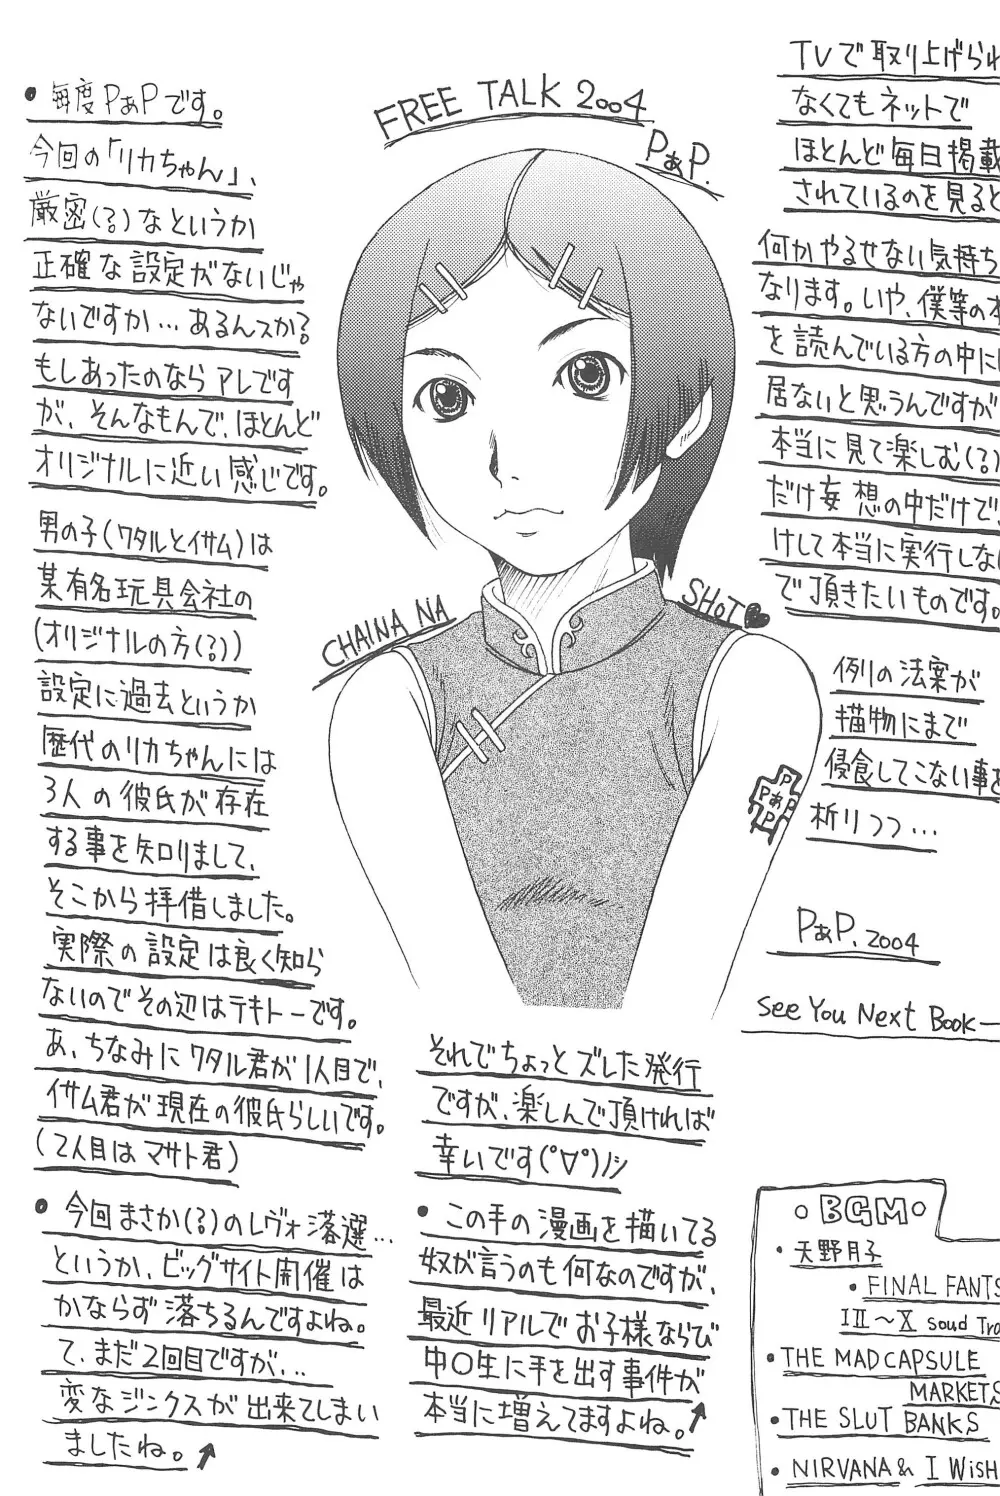 FREE TALK 2004
PぁP.
• 毎度PぁPです。
今回の「リカちゃん」、
厳密(?)なというか
正確な設定がないじゃ
ないですか…あるんスか?
もしあったのならアレです
が、そんなもんで、ほとんど
オリジナルに近い感じです。
男の子(ワタルとイサム)は
某有名玩具会社の
(オリジナルの方(?))
設定に過去というか
歴代のリカちゃんには
3人の彼氏が存在
する事を知りまして、
そこから拝借しました。
実際の設定は良く知ら
ないのでその辺はテキトーです。
あ、ちなみにワタル君が1人目で、
イサム君が現在の彼氏らしいです。
(2人目はマサト君)
• 今回まさか(?)のレヴォ落選…
というか、ビッグサイト開催は
かならず落ちるんですよね。
て、まだ2回目ですが…
変なジンクスが出来てしまい
ましたね。↗
CHAINA NA
SHOT♥
PぁP
P
P
それでちょっとズレた発行
ですが、楽しんで頂ければ
幸いです(°∀°)ノシ
• この手の漫画を描いてる
奴が言うのも何なのですが、
最近リアルでお子様ならび
中〇生に手を出す事件が
本当に増えてますよね。↗
TVで取り上げられ
なくてもネットで
ほとんど毎日掲載
されているのを見ると
何かやるせない気持ち
なります。いや、僕等の本
を読んでいる方の中に
居ないと思うんですが
本当に見て楽しむ(?)
だけ妄想の中だけで、
けして本当に実行しない
で頂きたいものです。
例の法案が
描物にまで
侵食してこない事を
祈りつつ…
PぁP. 2004
See You Next Book—
○BGM○
• 天野月子
• FINAL FANTS
IIII〜X soud Tra
• THE MAD CAPSULE
MARKETS
• THE SLUT BANKS
• NIRVANA & I WiSH